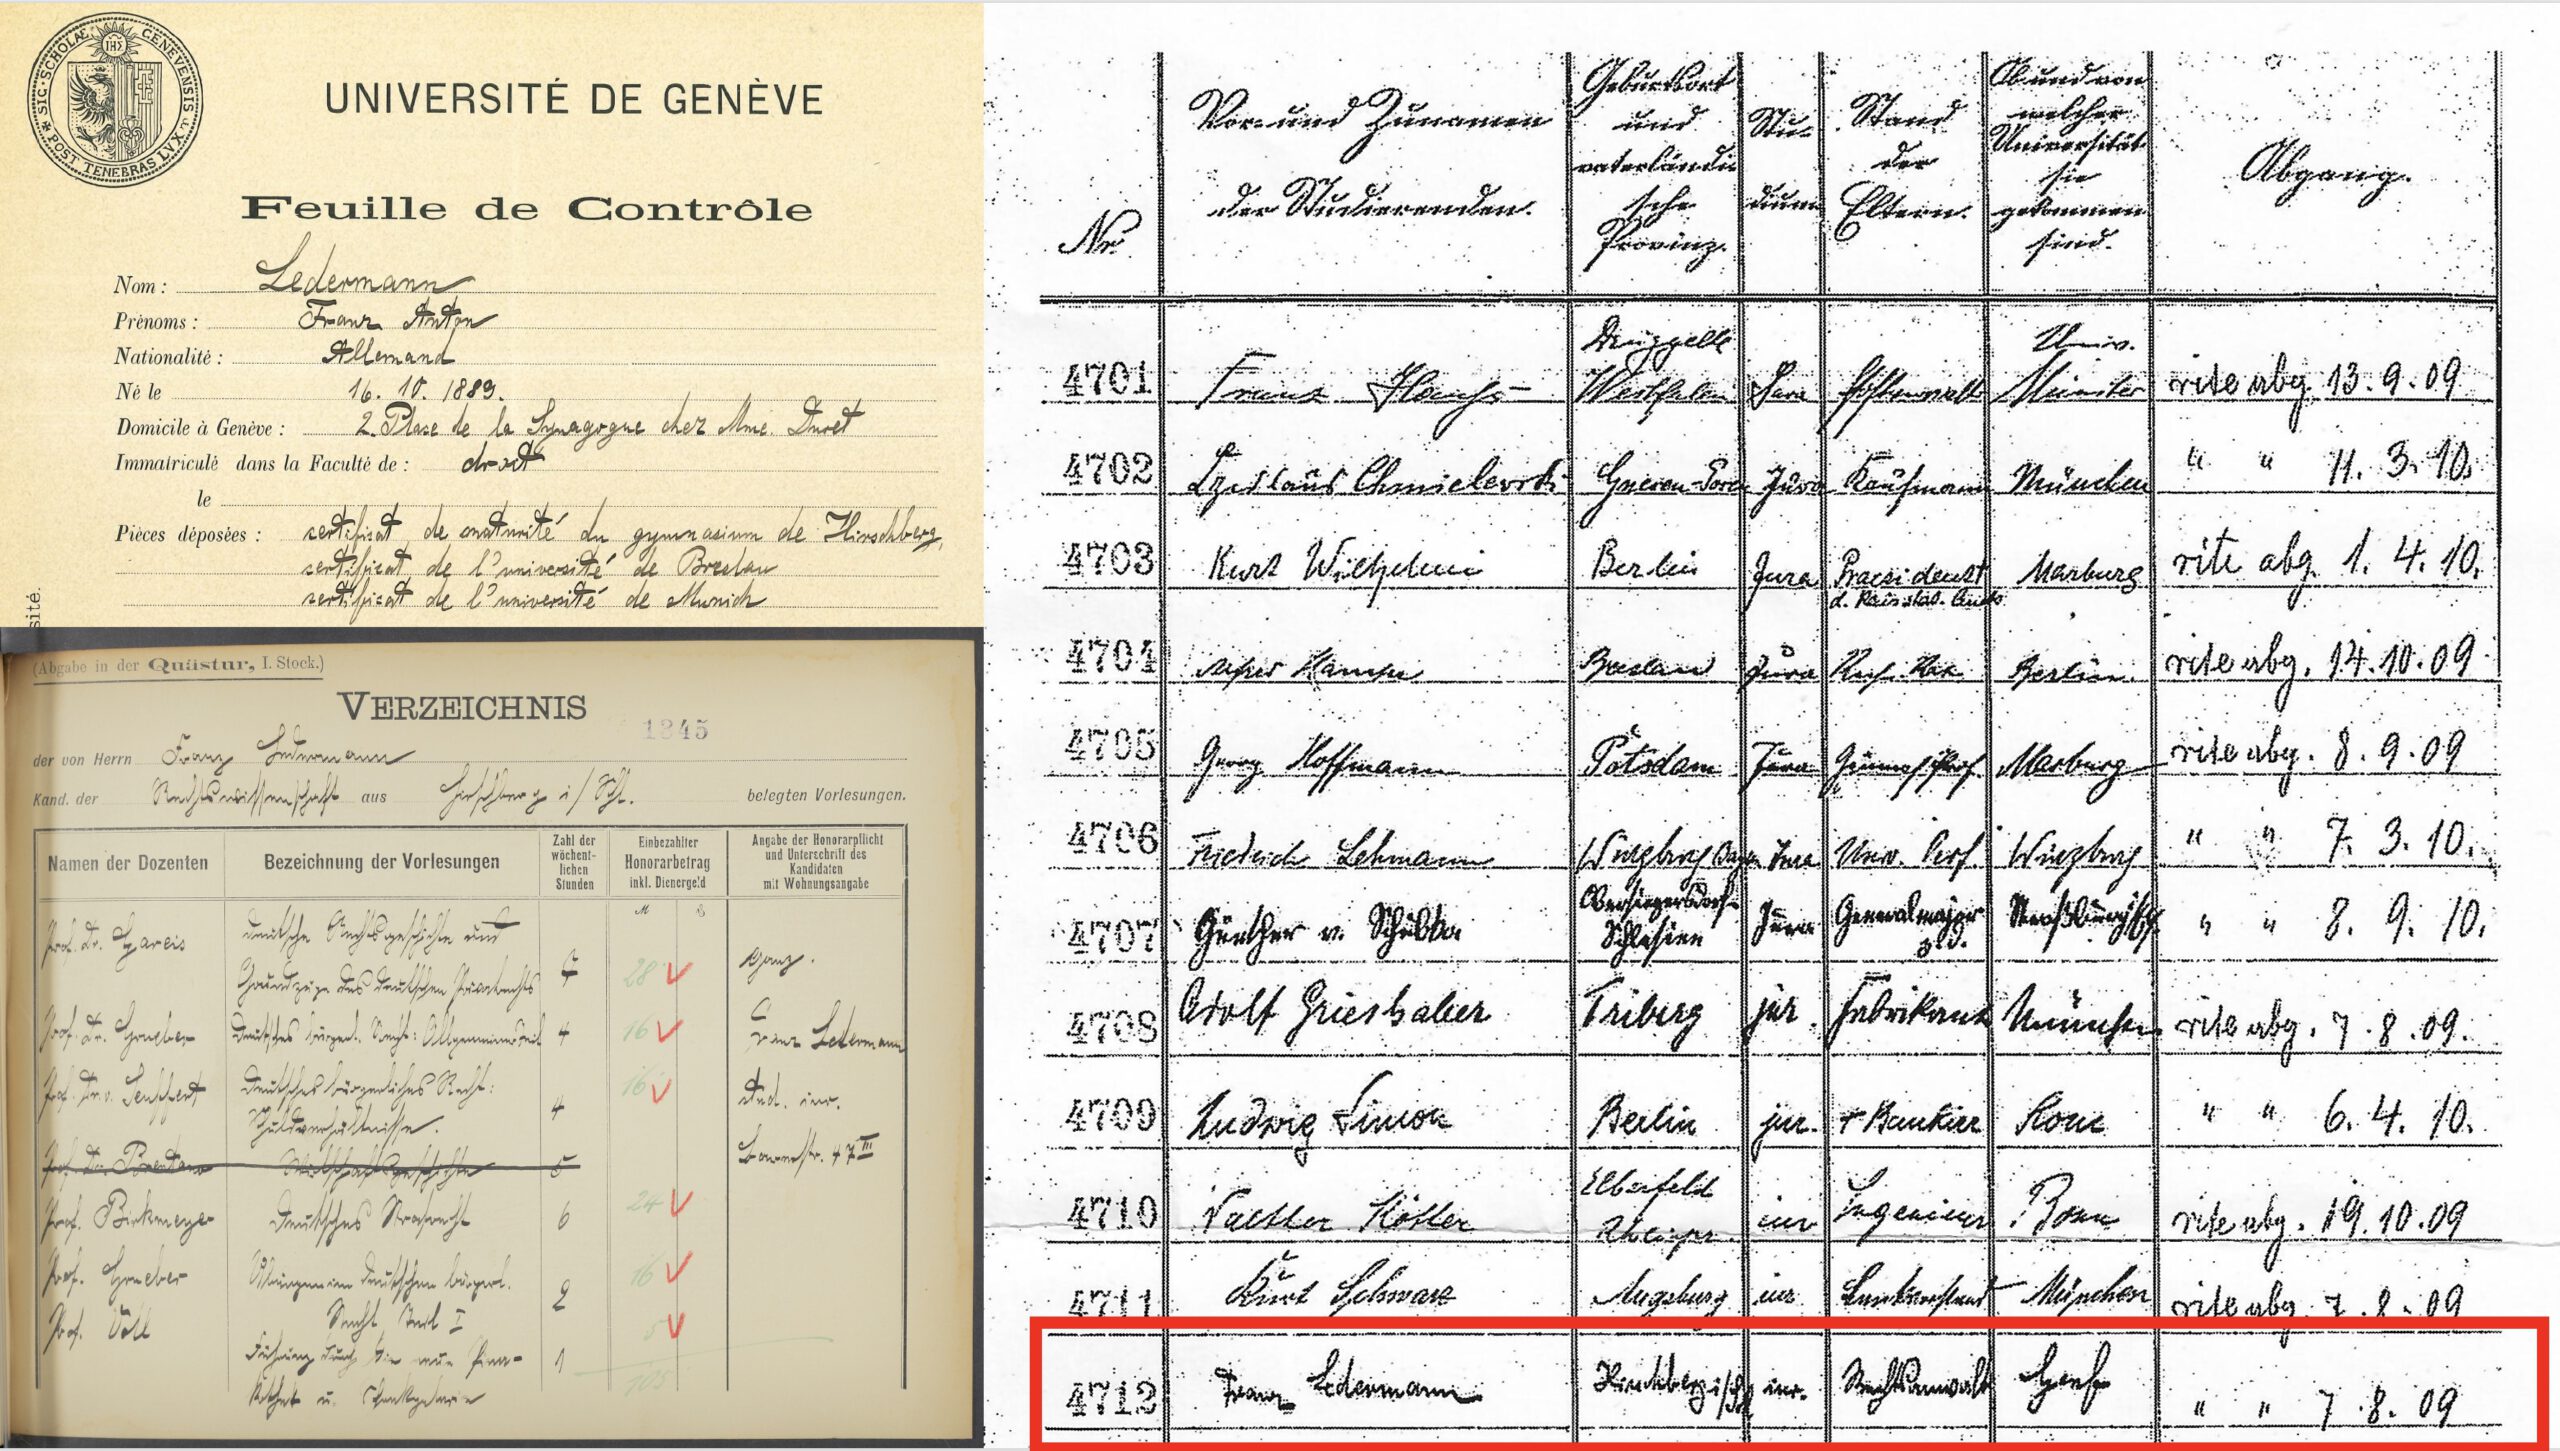 SIG·SCHOLAE GENEVENSIS
POST TENEBRAS LVX
IHS
UNIVERSITÉ DE GENÈVE
Feuille de Contrôle
Nom : Ledermann
Prénoms : Franz Anton
Nationalité : Allemand
Né le 16. 10. 1889.
Domicile à Genève : 2. Place de la Synagogue chez Mme.
Immatriculé dans la Faculté de : droit
le
Pièces déposées : certificat de maturité du gymnasium de Hirschberg,
certificat de l'université de Breslau
certificat de l'université de Munich
sité.
(Abgabe in der Quästur, I. Stock.)
VERZEICHNIS
1345
der von Herrn Franz Ledermann
Kand. der Rechtswissenschaft aus Hirschberg i/Schl. belegten Vorlesungen.
Namen der Dozenten
Bezeichnung der Vorlesungen
Zahl der
wöchent-
lichen
Stunden
Einbezahlter
Honorarbetrag
inkl. Dienergeld
Angabe der Honorarpflicht
und Unterschrift des
Kandidaten
mit Wohnungsangabe
M
Prof. Dr. Gareis deutsche Rechtsgeschichte und
Grundzüge des deutschen Privatrechts 28 ganz.
Prof. Dr. Grueber Deutsches bürgerl. Recht: Allgemeiner Teil 4 16 Franz Ledermann
Prof. Dr. v. Seuffert Deutsches bürgerliches Recht: 16 stud. iur.
Schuldverhältnisse. 4
5
Prof. Birkmeyer Deutsches Strafrecht 6 24
Prof. Grueber 2 16
Recht Teil I
Prof. Voll 5
Führung durch die neue Pina- 1
kothek u. 105
Nr.
Vor- und Zunamen
der Studierenden.
Geburtsort
und
vaterländi
sche
Provinz.
Stu-
dium
Stand
der
Eltern.
Ob und von
welcher
Universität
sie
gekommen
sind.
Abgang.
4701 Franz Westfalen Jura Univ. Münster rite abg. 13.9.09
4702 Jura Kaufmann München " " 11. 3. 10.
4703 Kurt Wilhelmi Berlin Jura Praesident Marburg rite abg. 1. 4. 10.
4704 Breslau Jura Berlin. rite abg. 14.10.09
4705 Georg Hoffmann Potsdam Jura Marburg rite abg. 8. 9. 09
4706 Friedrich Lehmann Würzburg Jura Univ. Prof. Würzburg " " 7. 3. 10.
4707 Günther v. Schlesien Jura Generalmajor z. D. " " 8. 9. 10.
4708 Adolf Grieshaber Triberg jur. Fabrikant München rite abg. 7. 8. 09.
4709 Ludwig Simon Berlin jur. + Bankier " " 6. 4. 10.
4710 Elberfeld iur Ingenieur Bonn rite abg. 19.10.09
4711 Kurt Schwarz Augsburg iur München rite abg. 7. 8. 09
4712 Franz Ledermann Hirschberg i/Schl iur. Rechtsanwalt Genf " " 7. 8. 09